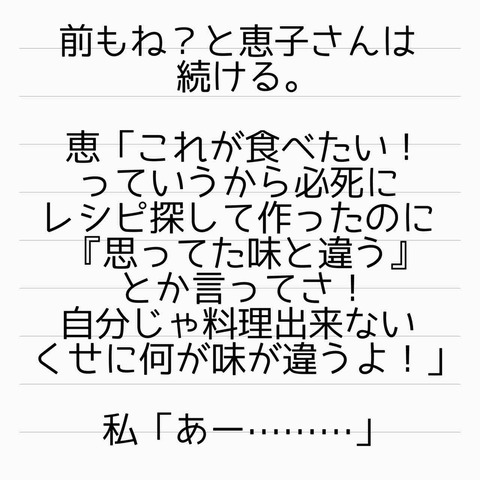 前もね？と恵子さんは
続ける。
恵「これが食べたい！
っていうから必死に
レシピ探して作ったのに
『思ってた味と違う』
とか言ってさ！
自分じゃ料理出来ない
くせに何が味が違うよ！」
私「あー………」